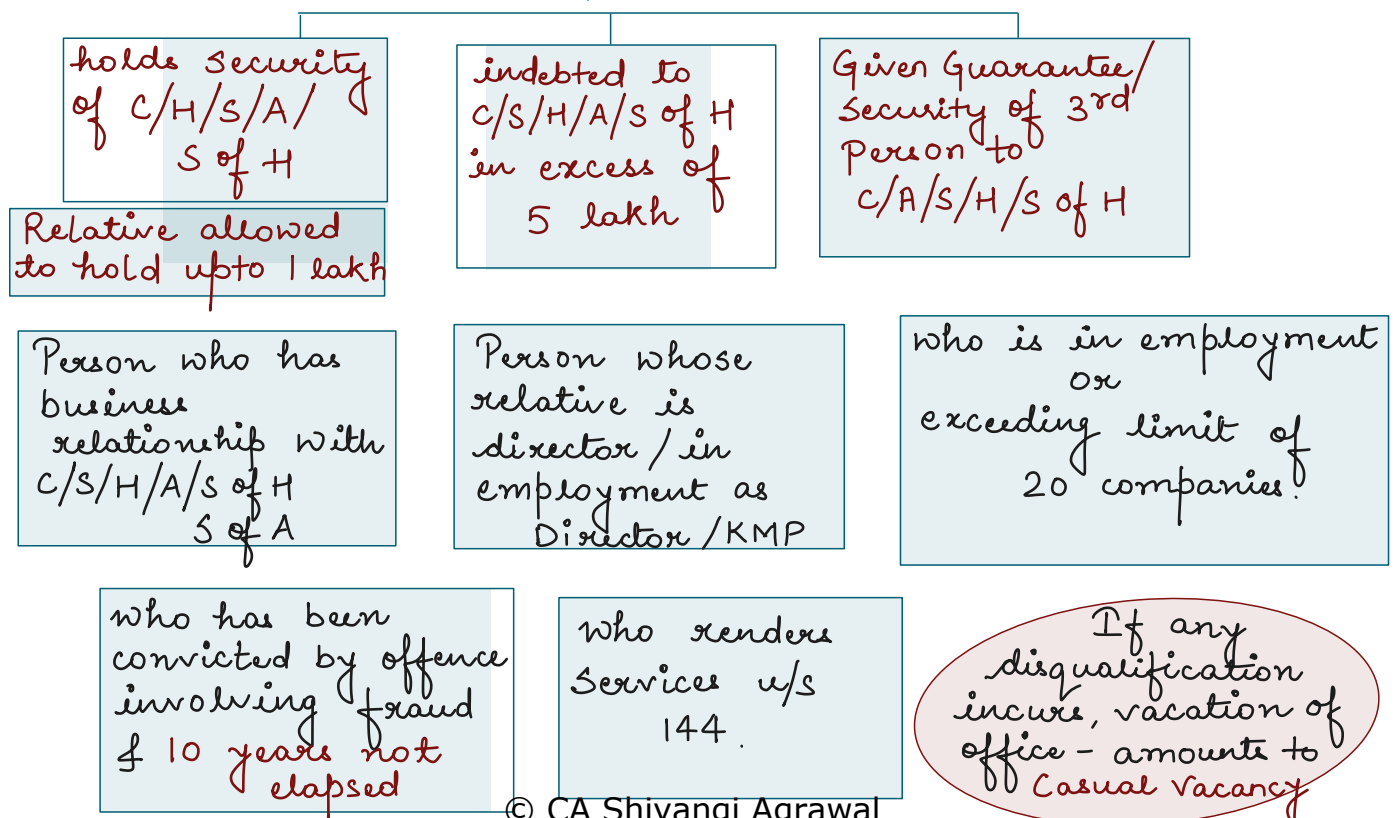 holds security
of C/H/S/A/
S of H
Relative allowed
to hold upto 1 lakh
indebted to
C/S/H/A/S of H
in excess of
5 lakh
Given Guarantee/
Security of 3rd
Person to
C/A/S/H/S of H
Person who has
business
relationship with
C/S/H/A/S of H
S of A
Person whose
relative is
director / in
employment as
Director/KMP
who is in employment
or
exceeding limit of
20 companies.
who has been
convicted by offence
involving fraud
& 10 years not
elapsed
who renders
Services u/s
144.
If any
disqualification
incurs, vacation of
office - amounts to
Casual Vacancy
© CA Shivangi Agrawal